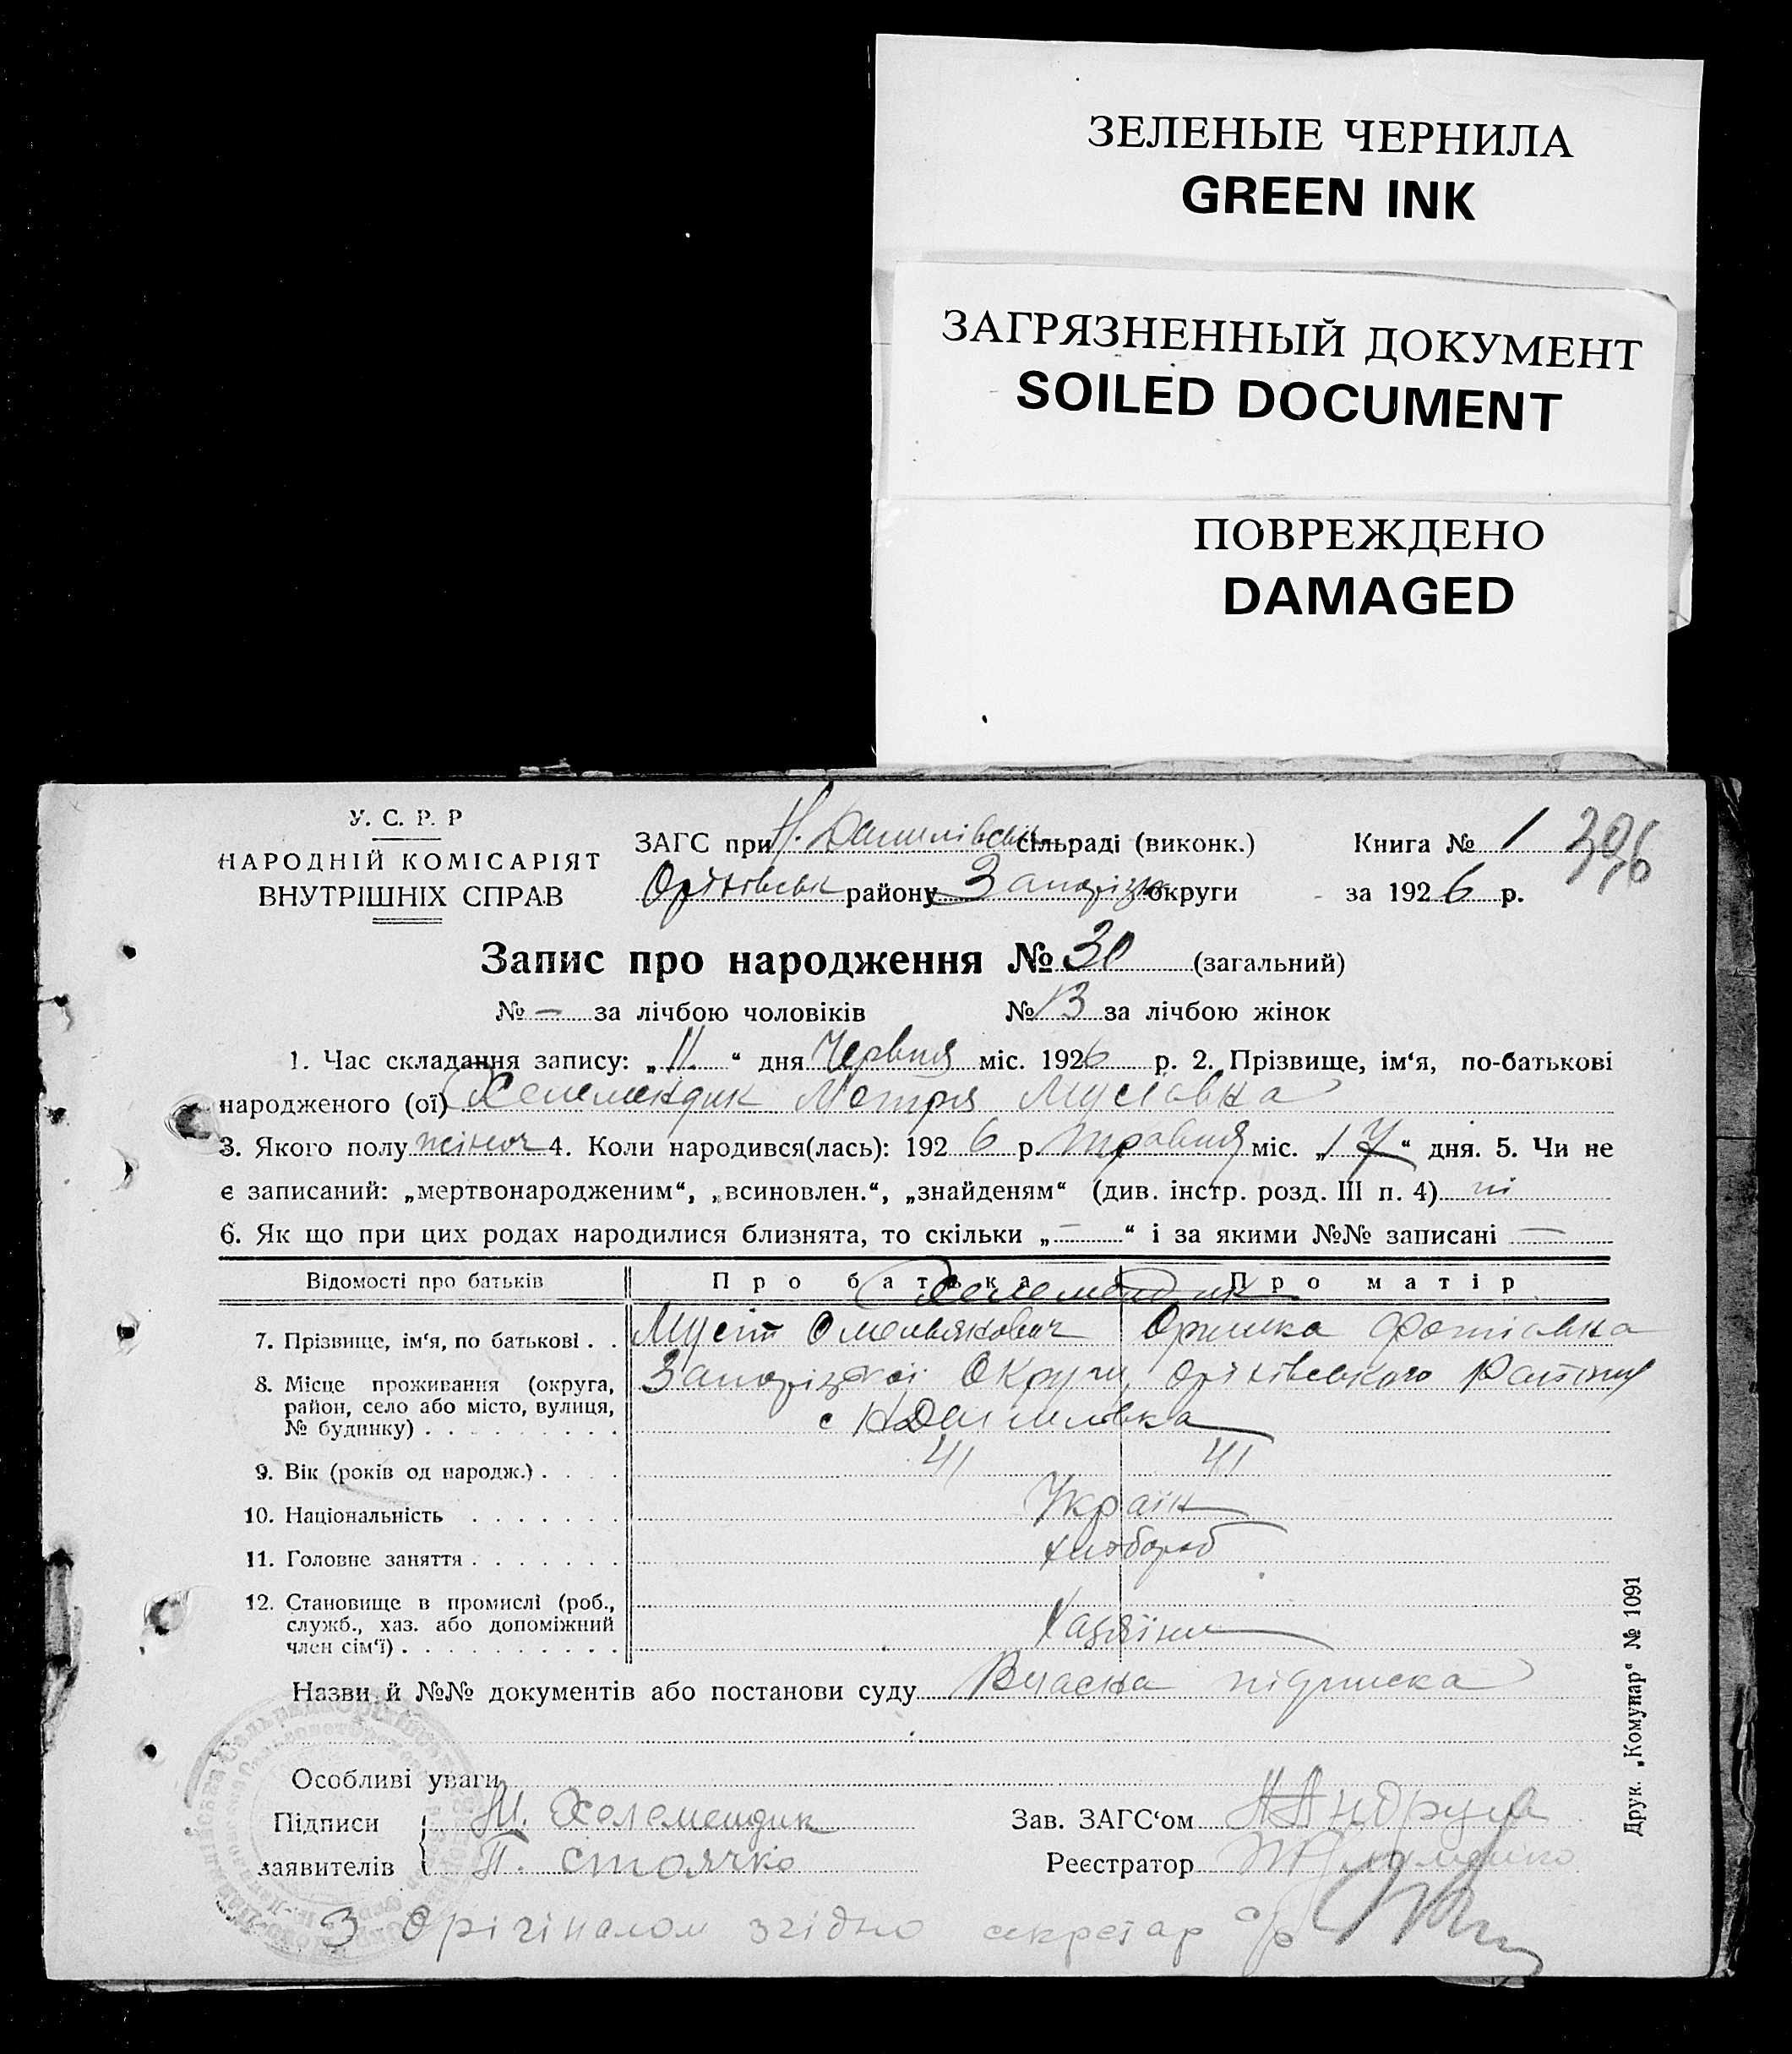 ЗЕЛЕНЫЕ ЧЕРНИЛА
GREEN INK
ЗАГРЯЗНЕННЫЙ ДОКУМЕНТ
SOILED DOCUMENT
ПОВРЕЖДЕНО
DAMAGED
У. С. Р. Р
НАРОДНІЙ КОМІСАРІЯТ
ВНУТРІШНІХ СПРАВ
ЗАГС при Н. Данилівськ сільраді (виконк.)
Оріхівськ району Запоріз округи
Книга № 1 396
за 1926 р.
Запис про народження № 30 (загальний)
№ — за лічбою чоловіків № 13 за лічбою жінок
1. Час складання запису: „11.“ дня Червня міс. 1926 р. 2. Прізвище, ім‘я, по-батькові
народженого (ої) Хелемендик Мотря Мусіївна
3. Якого полу жіноч 4. Коли народився(лась): 1926 р. травня міс. „17“ дня. 5. Чи не
є записаний: „мертвонародженим“, „всиновлен.“, „знайденям“ (див. інстр. розд. III п. 4) ні
6. Як що при цих родах народилися близнята, то скільки „—“ і за якими №№ записані —
Відомості про батьків Про батька Про матір
Хелемендик
7. Прізвище, ім‘я, по батькові . . Мусій Омельянович Оришка Фотіївна
8. Місце проживання (округа, район, село або місто, вулиця, № будинку) Запорізької Округи, Оріхівського Району
с Н Данилівка
9. Вік (років од народж.) 41 41
10. Національність Україн
11. Головне заняття хлібороб
12. Становище в промислі (роб., служб., хаз. або допоміжний член сім‘ї) Хазяїни
Назви й №№ документів або постанови суду Власна підписка
Особливі уваги
Підписи заявителів М. Хелемендик
П. Стоячко
Зав. ЗАГС‘ом
Реєстратор
З Орігіналом згідно секретар с/р
Друк. „Комунар“ № 1091